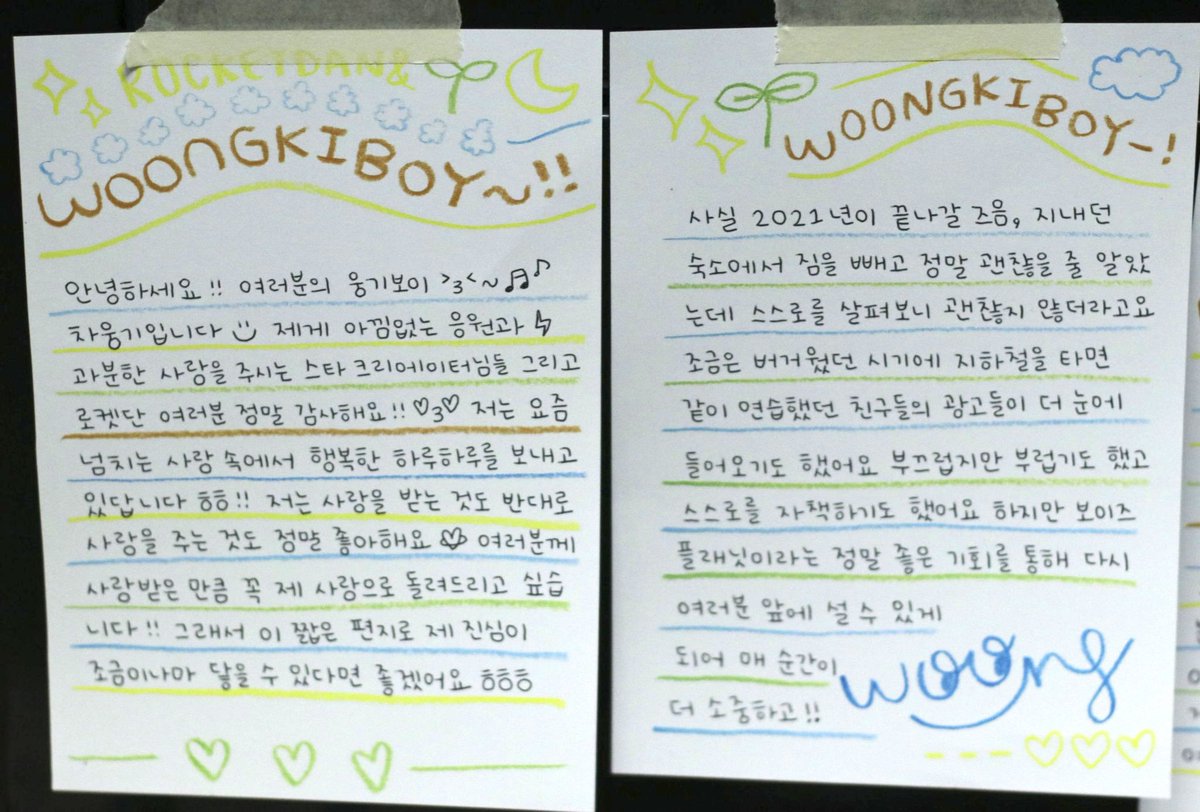 ROCKETDAN&
WOONGKIBOY~!!
안녕하세요!! 여러분의 웅기보이 >3<~♬♪
차웅기입니다 제게 아낌없는 응원과
과분한 사랑을 주시는 스타크리에이터님들 그리고
로켓단 여러분 정말 감사해요!! ♡3♡ 저는 요즘
넘치는 사랑 속에서 행복한 하루하루를 보내고
있답니다 ㅎㅎ!! 저는 사랑을 받는 것도 반대로
사랑을 주는 것도 정말 좋아해요 여러분께
사랑받은 만큼 꼭 제 사랑으로 돌려드리고 싶습
니다!! 그래서 이 짧은 편지로 제 진심이
조금이나마 닿을 수 있다면 좋겠어요 ㅎㅎㅎ
WOONGKIBOY~!
사실 2021년이 끝나갈 즈음, 지내던
숙소에서 짐을 빼고 정말 괜찮을 줄 알았
는데 스스로를 살펴보니 괜찮지 않더라고요
조금은 버거웠던 시기에 지하철을 타면
같이 연습했던 친구들의 광고들이 더 눈에
들어오기도 했어요 부끄럽지만 부럽기도 했고
스스로를 자책하기도 했어요 하지만 보이즈
플래닛이라는 정말 좋은 기회를 통해 다시
여러분 앞에 설 수 있게
되어 매 순간이
더 소중하고!!
woong